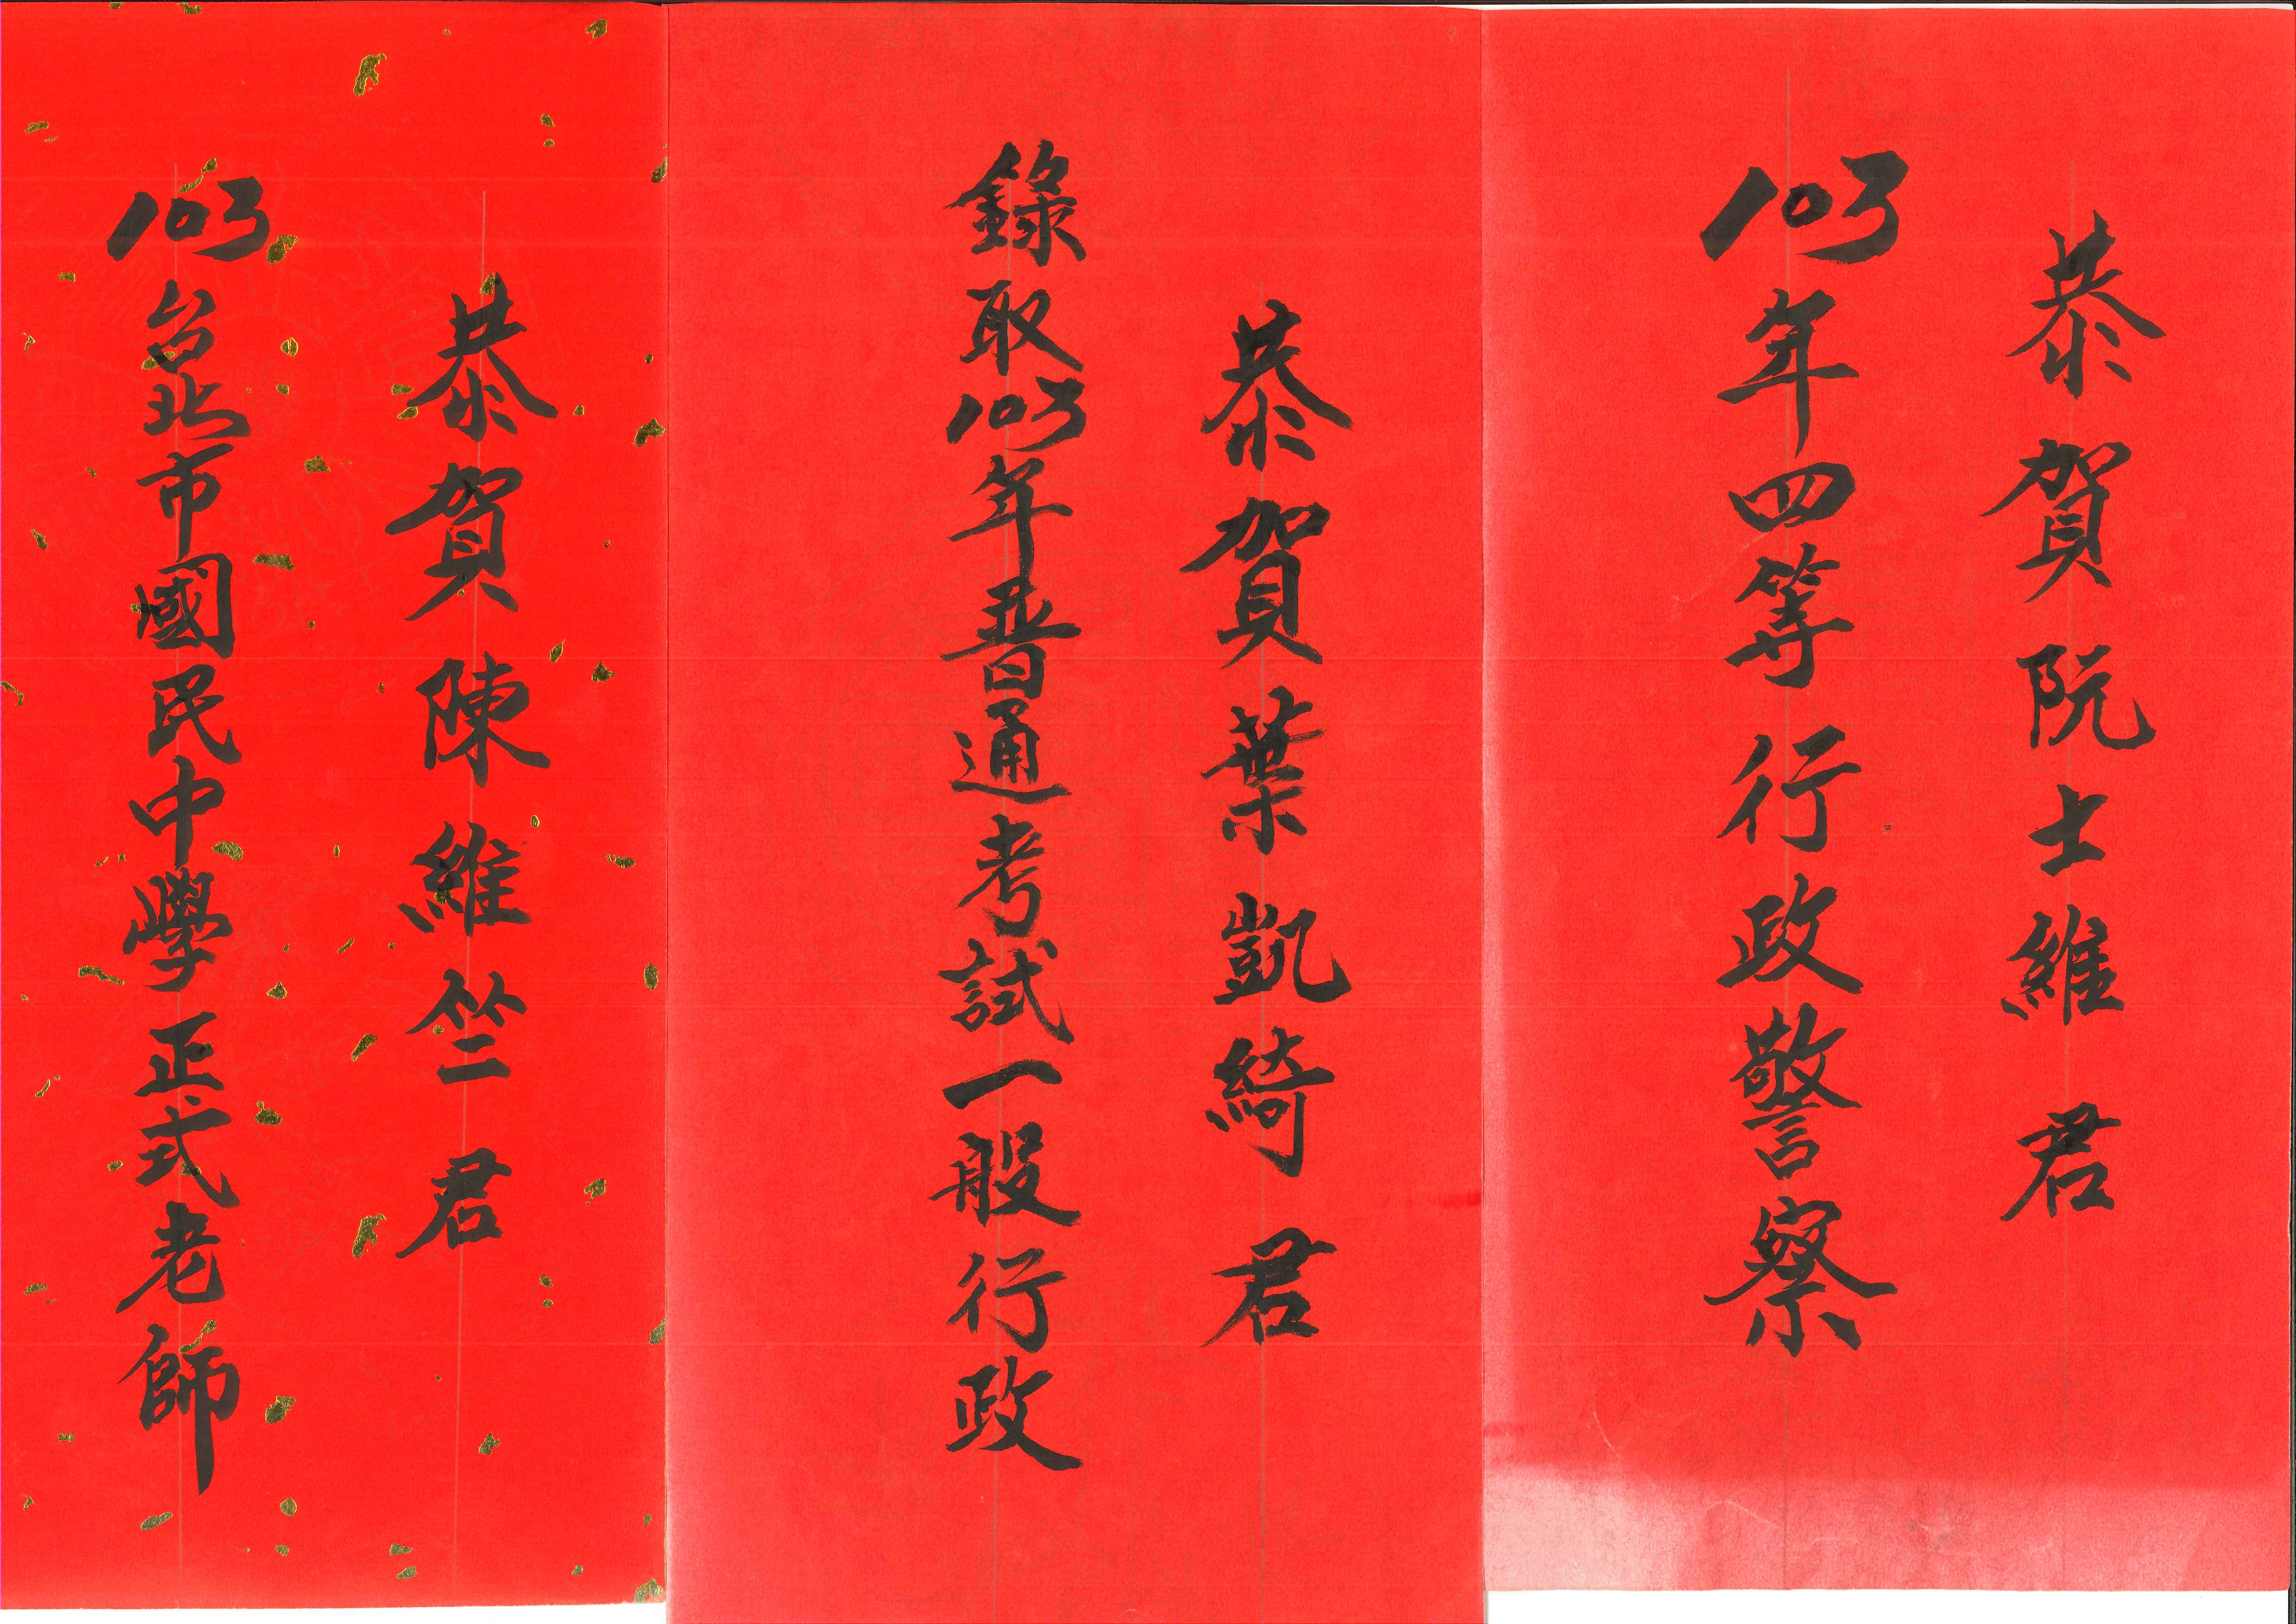 恭賀阮士維君
103年四等行政警察
恭賀葉凱綺君
錄取103年普通考試一般行政
恭賀陳維竺君
103台北市國民中學正式老師